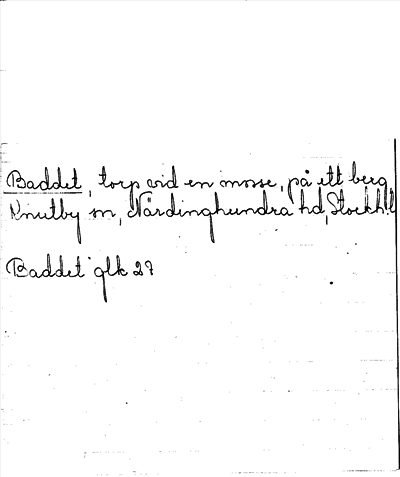 Baddet, torp vid en mosse, på ett berg
Knutby sn, Närdinghundra hd, Stockh.l
Baddet glk 27